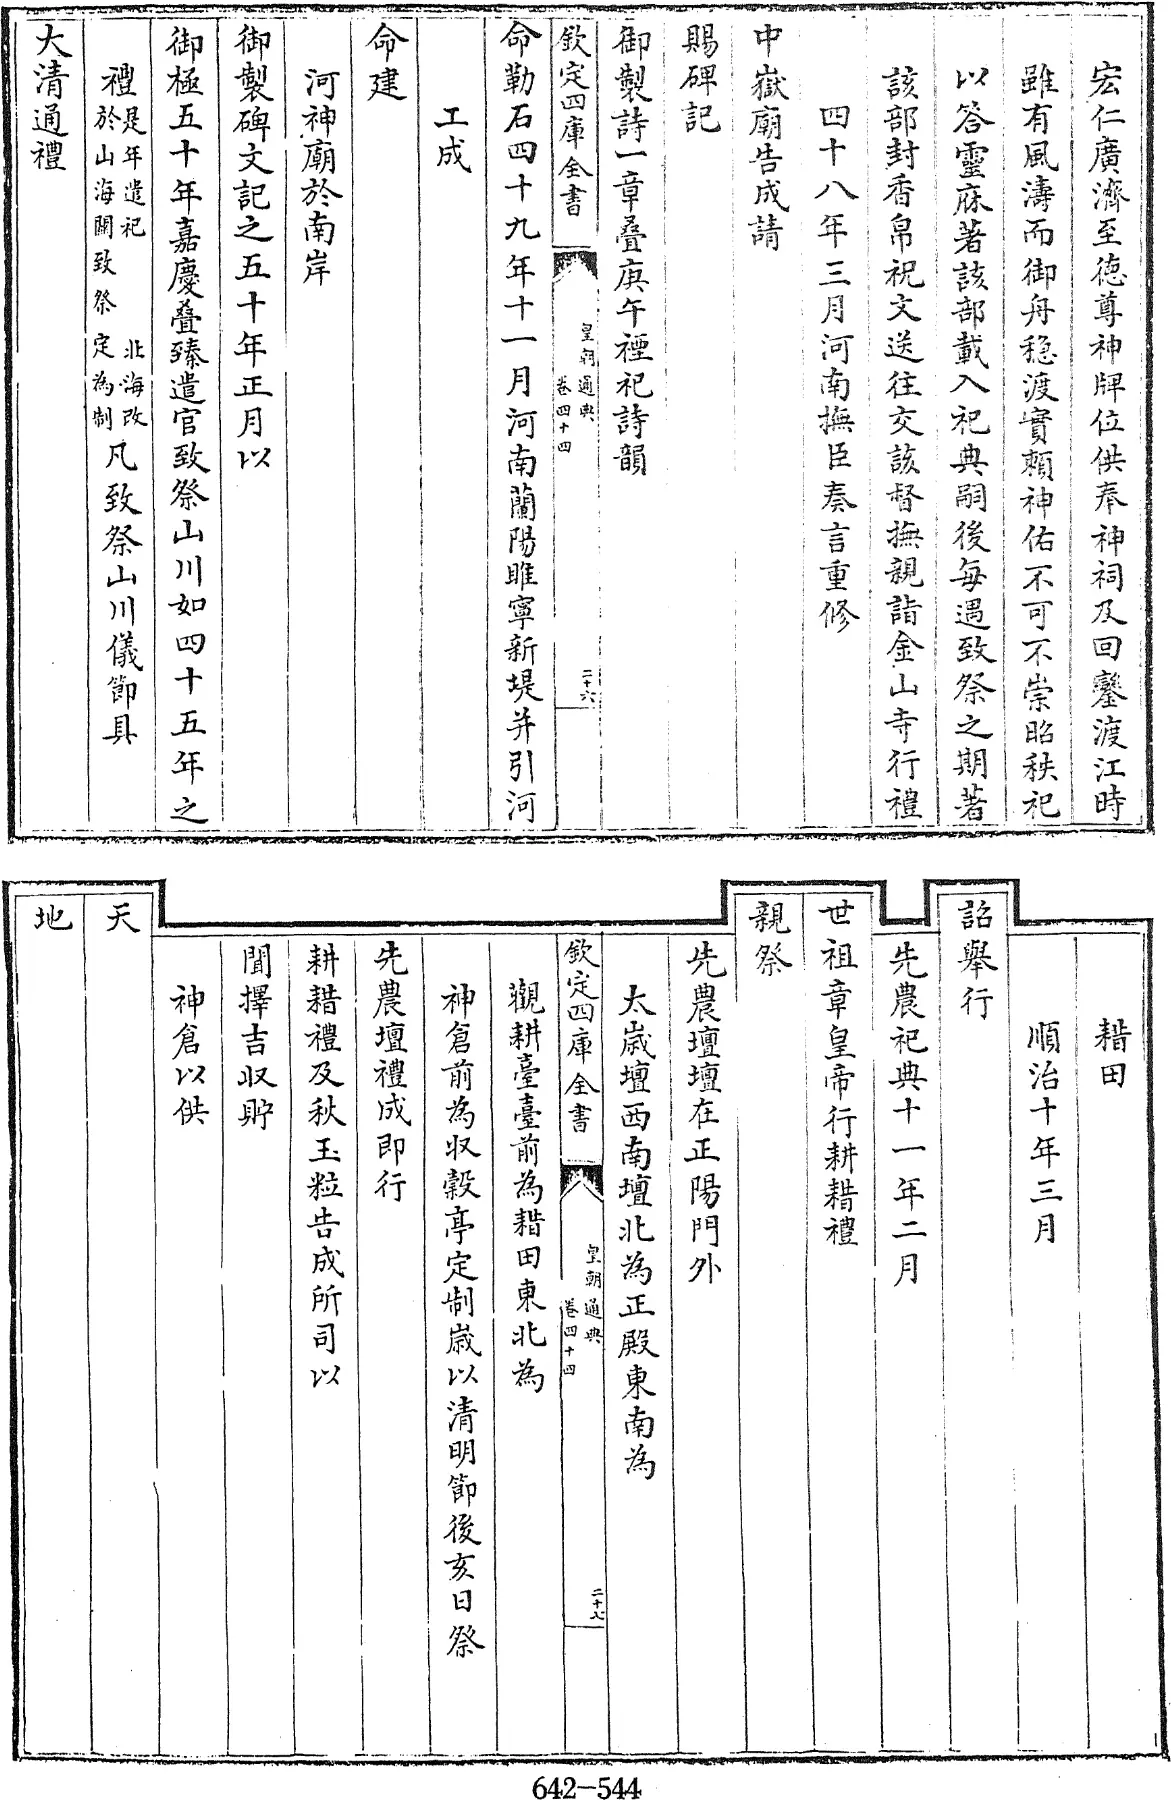 宏仁廣濟至德尊神牌位供奉神祠及回鑾渡江時
雖有風濤而御舟穏渡實賴神佑不可不崇昭秩祀
以答靈庥著該部載入祀典嗣後每遇致祭之期著
該部封香帛祝文送往交該督撫親詣金山寺行禮
四十八年三月河南撫臣奏言重修
中嶽廟告成請
賜碑記
御製詩一章疊庚午禋祀詩韻
欽定四庫全書
皇朝通典
卷四十四
二十六
命勒石四十九年十一月河南蘭陽睢寧新堤并引河
工成
命建
河神廟於南岸
御製碑文記之五十年正月以
御極五十年嘉慶疊臻遣官致祭山川如四十五年之
禮是年遣祀北海改
於山海關致祭定為制凡致祭山川儀節具
大清通禮
耤田
順治十年三月
詔舉行
先農祀典十一年二月
世祖章皇帝行耕耤禮
親祭
先農壇壇在正陽門外
太歲壇西南壇北為正殿東南為
欽定四庫全書
皇朝通典
卷四十四
二十七
觀耕臺臺前為耤田東北為
神倉前為收穀亭定制歲以清明節後亥日祭
先農壇禮成即行
耕耤禮及秋玉粒告成所司以
聞擇吉收貯
神倉以供
天
地
642-544